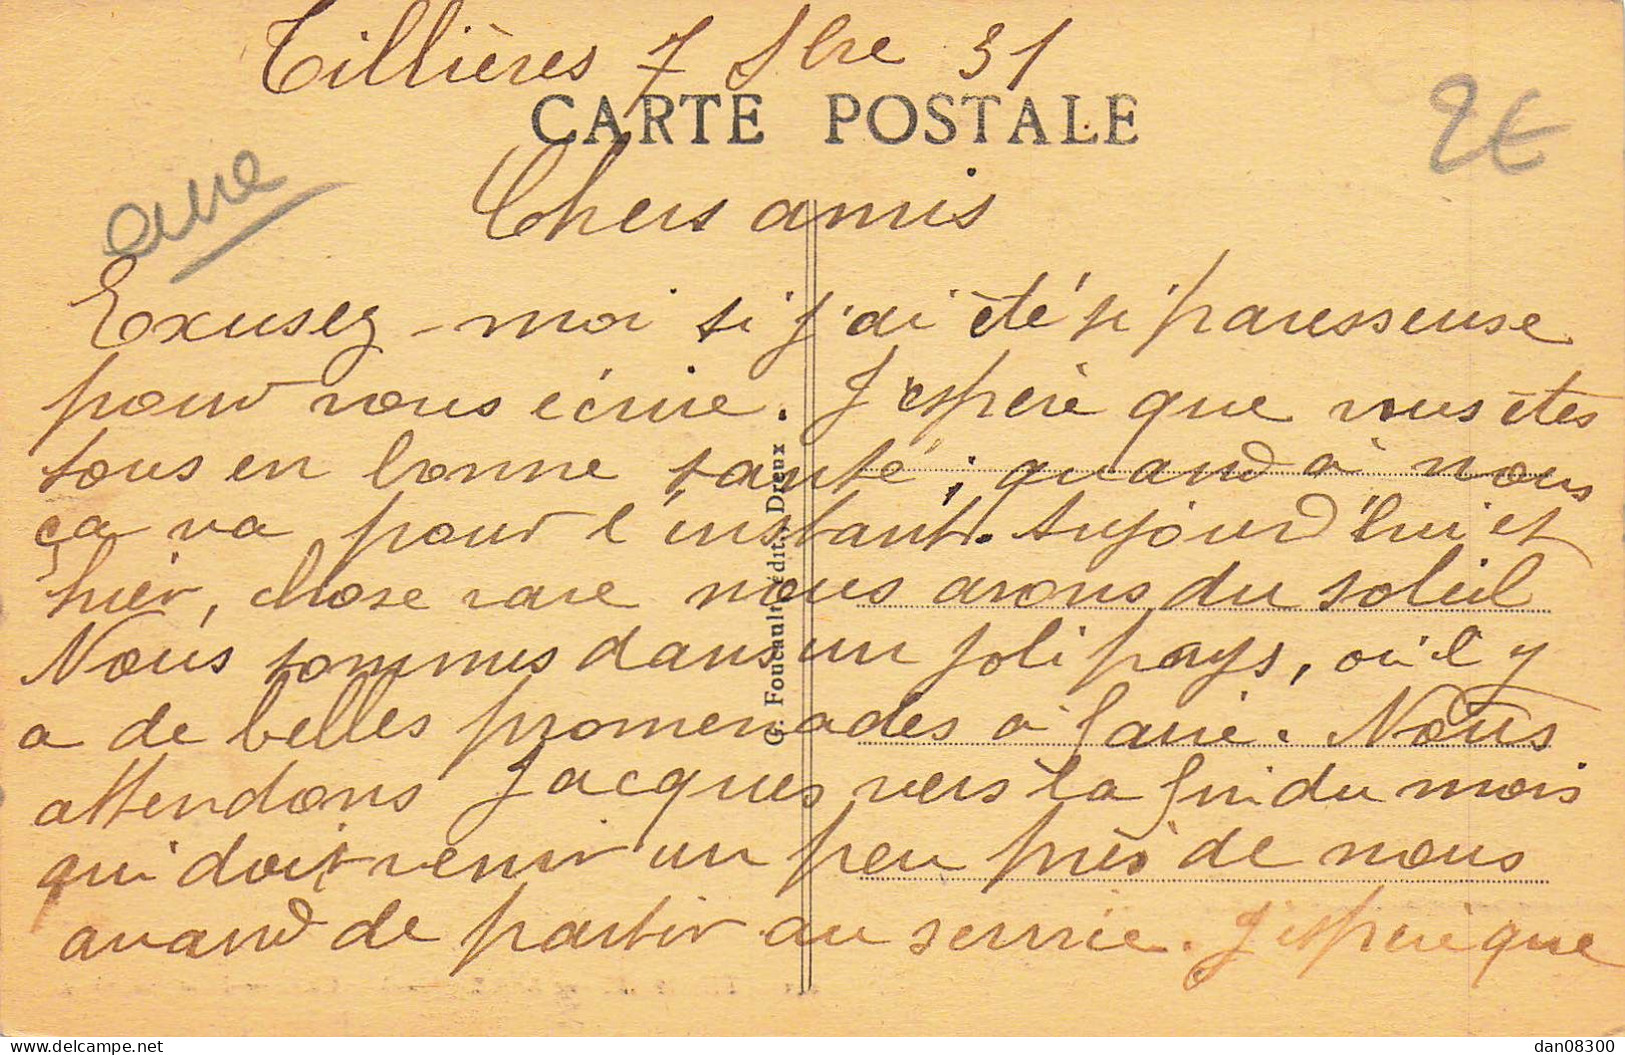 Tillières 7 Sbre 31
CARTE POSTALE
2€
eure
Chers amis
Exusez-moi si j'ai été si paresseuse
pour vous écrire. J'espère que vous êtes
tous en bonne santé, quand à nous
ça va pour l'instant. Aujourd'hui et
hier, chose rare nous avons du soleil
Nous sommes dans un joli pays, où il y
a de belles promenades à faire. Nous
attendons Jacques vers la fin du mois
qui doit venir un peu près de nous
avand de partir au servie. J'espère que
G. Foucault, édit., Dreux
delcampe.net
dan08300